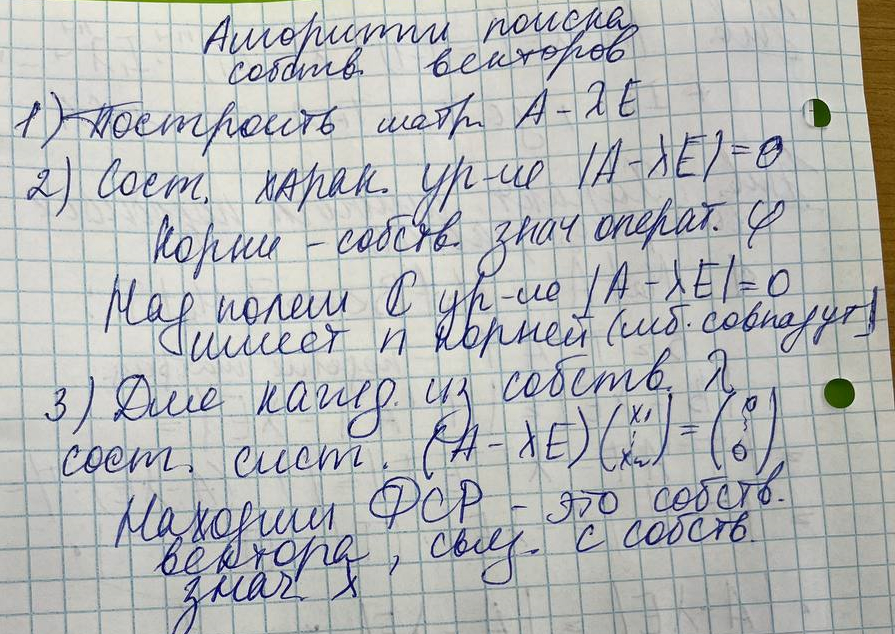 Алгоритм поиска
собств. векторов
1) Построить матр. A - λE
2) Сост. харак. ур-ие |A - λE| = 0
Корни - собств. знач операт. φ
Над полем ℂ ур-ие |A - λE| = 0
имеет n корней (мб. совпадут)
3) Для кажд. из собств. λ
сост. сист. (A - λE) (x₁ ⋮ xₙ) = (0 ⋮ 0)
Находим ФСР - это собств.
вектора, связ. с собств.
знач. λ